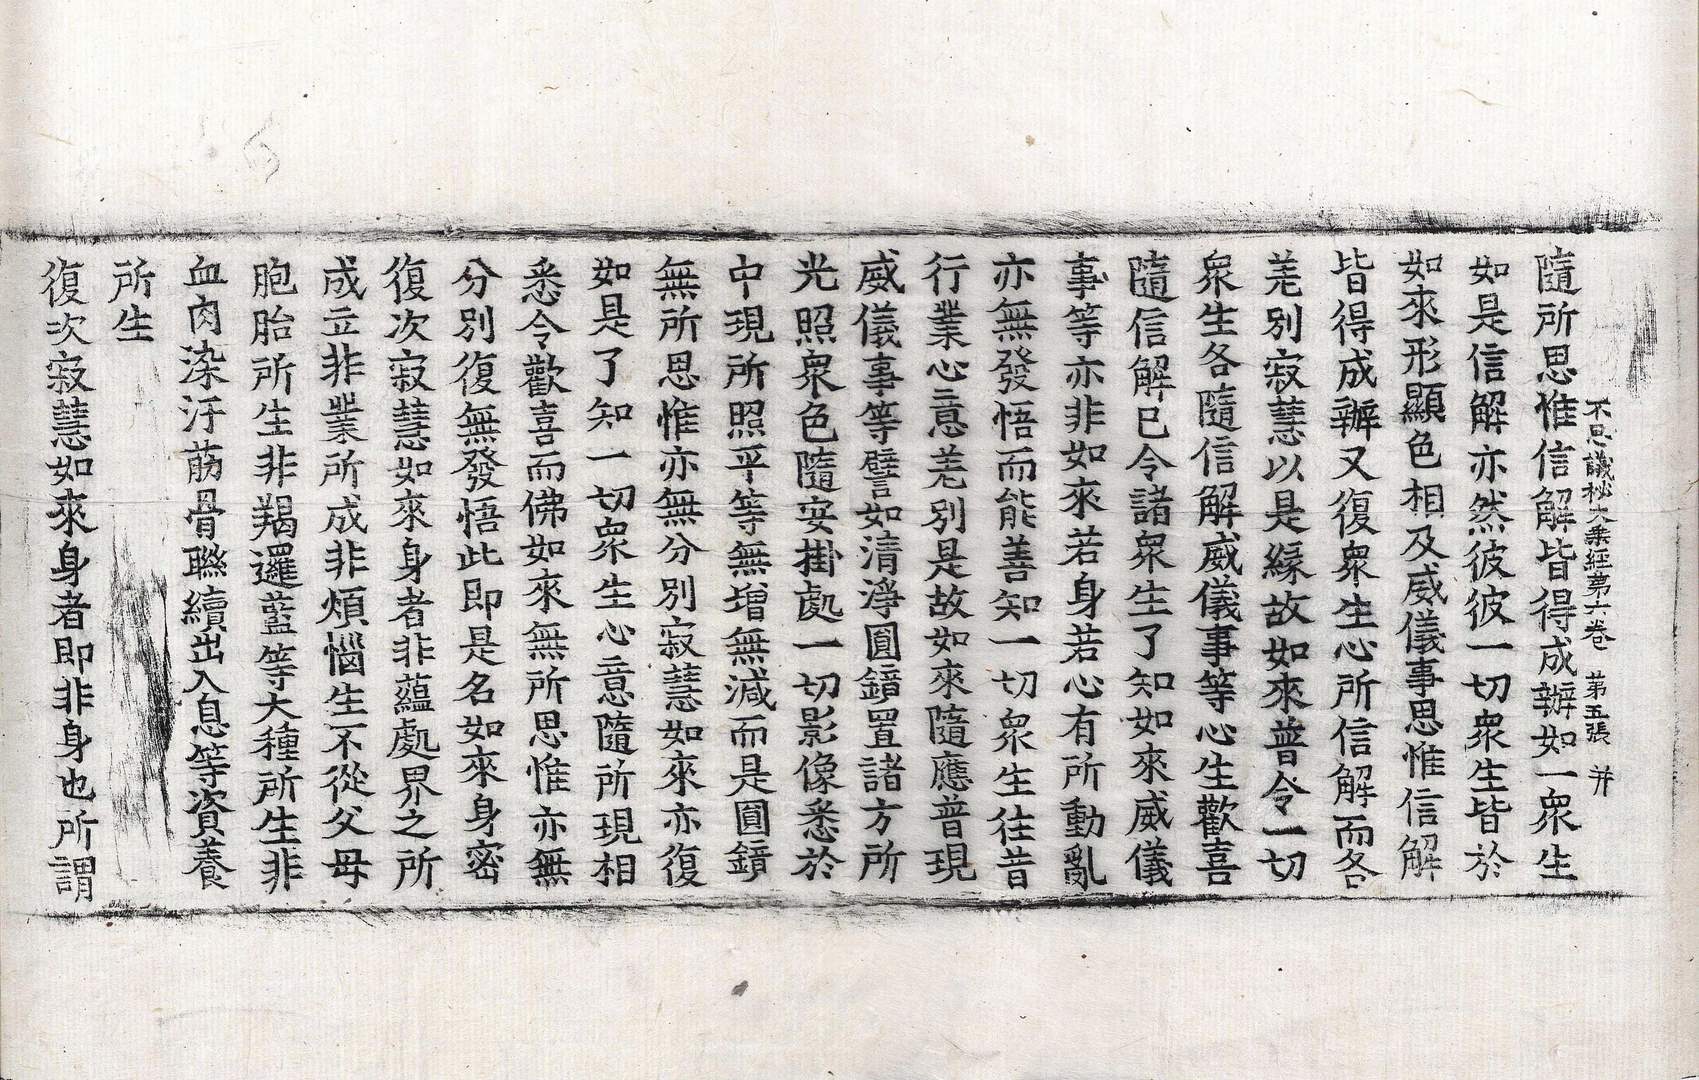 不思議秘大乘經第六卷　第五張　并
隨所思惟信解皆得成辦如一衆生
如是信解亦然彼彼一切衆生皆於
如來形顯色相及威儀事思惟信解
皆得成辦又復衆生心所信解而各
差別寂慧以是緣故如來普令一切
衆生各隨信解威儀事等心生歡喜
隨信解已令諸衆生了知如來威儀
事等亦非如來若身若心有所動亂
亦無發悟而能善知一切衆生往昔
行業心意差別是故如來隨應普現
威儀事等譬如清淨圓鏡置諸方所
光照衆色隨安掛處一切影像悉於
中現所照平等無增無減而是圓鏡
無所思惟亦無分別寂慧如來亦復
如是了知一切衆生心意隨所現相
悉令歡喜而佛如來無所思惟亦無
分別復無發悟此即是名如來身密
復次寂慧如來身者非蘊處界之所
成立非業所成非煩惱生不從父母
胞胎所生非羯邏藍等大種所生非
血肉染汙筋骨聯續出入息等資養
所生
復次寂慧如來身者即非身也所謂